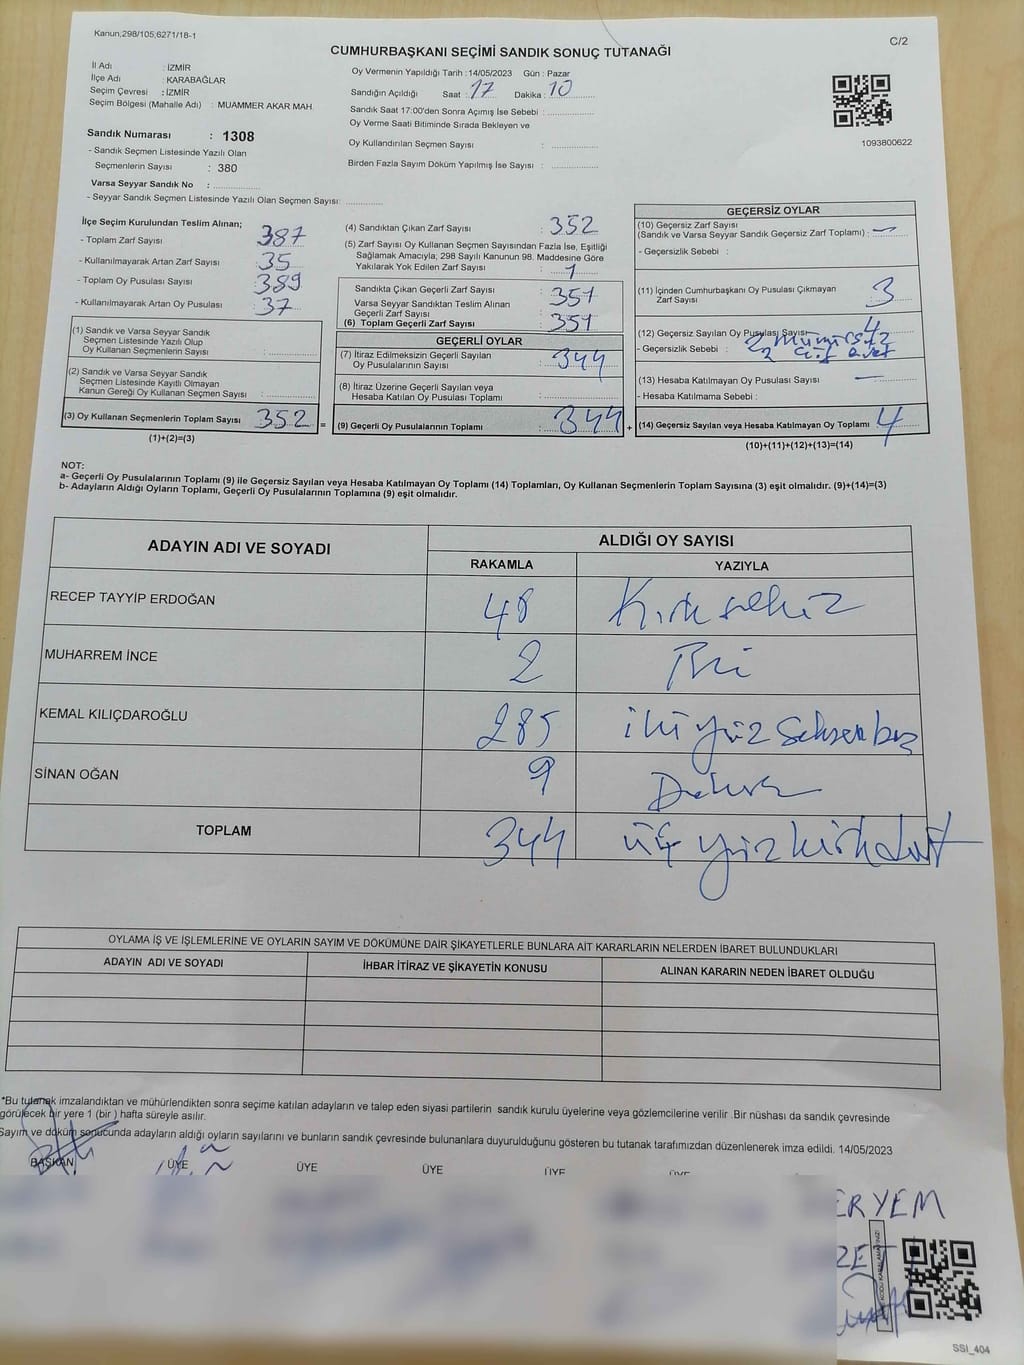 Kanun,298/105,6271/18-1
C/2
CUMHURBAŞKANI SEÇİMİ SANDIK SONUÇ TUTANAĞI
İl Adı : İZMİR
İlçe Adı : KARABAĞLAR
Seçim Çevresi : İZMİR
Seçim Bölgesi (Mahalle Adı) : MUAMMER AKAR MAH.
Sandık Numarası : 1308
- Sandık Seçmen Listesinde Yazılı Olan
Seçmenlerin Sayısı : 380
Varsa Seyyar Sandık No :
- Seyyar Sandık Seçmen Listesinde Yazılı Olan Seçmen Sayısı:
Oy Vermenin Yapıldığı Tarih : 14/05/2023 Gün : Pazar
Sandığın Açıldığı Saat : 17 Dakika : 10
Sandık Saat 17:00'den Sonra Açımış İse Sebebi :
Oy Verme Saati Bitiminde Sırada Bekleyen ve
Oy Kullandırılan Seçmen Sayısı :
Birden Fazla Sayım Döküm Yapılmış İse Sayısı :
1093800622
İlçe Seçim Kurulundan Teslim Alınan;
- Toplam Zarf Sayısı : 387
- Kullanılmayarak Artan Zarf Sayısı : 35
- Toplam Oy Pusulası Sayısı : 389
- Kullanılmayarak Artan Oy Pusulası : 37
(1) Sandık ve Varsa Seyyar Sandık
Seçmen Listesinde Yazılı Olup
Oy Kullanan Seçmenlerin Sayısı :
(2) Sandık ve Varsa Seyyar Sandık
Seçmen Listesinde Kayıtlı Olmayan
Kanun Gereği Oy Kullanan Seçmen Sayısı :
(3) Oy Kullanan Seçmenlerin Toplam Sayısı : 352 =
(1)+(2)=(3)
(4) Sandıktan Çıkan Zarf Sayısı : 352
(5) Zarf Sayısı Oy Kullanan Seçmen Sayısından Fazla İse, Eşitliği
Sağlamak Amacıyla; 298 Sayılı Kanunun 98. Maddesine Göre
Yakılarak Yok Edilen Zarf Sayısı : 1
Sandıkta Çıkan Geçerli Zarf Sayısı : 351
Varsa Seyyar Sandıktan Teslim Alınan
Geçerli Zarf Sayısı :
(6) Toplam Geçerli Zarf Sayısı : 351
GEÇERLİ OYLAR
(7) İtiraz Edilmeksizin Geçerli Sayılan
Oy Pusulalarının Sayısı : 344
(8) İtiraz Üzerine Geçerli Sayılan veya
Hesaba Katılan Oy Pusulası Toplamı :
(9) Geçerli Oy Pusulalarının Toplamı : 344 +
GEÇERSİZ OYLAR
(10) Geçersiz Zarf Sayısı
(Sandık ve Varsa Seyyar Sandık Geçersiz Zarf Toplamı) : —
- Geçersizlik Sebebi :
(11) İçinden Cumhurbaşkanı Oy Pusulası Çıkmayan
Zarf Sayısı : 3
(12) Geçersiz Sayılan Oy Pusulası Sayısı : 4
- Geçersizlik Sebebi : 2 Mühürsüz
2 çift evet
(13) Hesaba Katılmayan Oy Pusulası Sayısı : —
- Hesaba Katılmama Sebebi :
(14) Geçersiz Sayılan veya Hesaba Katılmayan Oy Toplamı : 4
(10)+(11)+(12)+(13)=(14)
NOT:
a- Geçerli Oy Pusulalarının Toplamı (9) ile Geçersiz Sayılan veya Hesaba Katılmayan Oy Toplamı (14) Toplamları, Oy Kullanan Seçmenlerin Toplam Sayısına (3) eşit olmalıdır. (9)+(14)=(3)
b- Adayların Aldığı Oyların Toplamı, Geçerli Oy Pusulalarının Toplamına (9) eşit olmalıdır.
ADAYIN ADI VE SOYADI
ALDIĞI OY SAYISI
RAKAMLA YAZIYLA
RECEP TAYYİP ERDOĞAN 48 Kırksekiz
MUHARREM İNCE 2 İki
KEMAL KILIÇDAROĞLU 285 ikiyüz seksenbeş
SİNAN OĞAN 9 Dokuz
TOPLAM 344 üç yüz kırkdört
OYLAMA İŞ VE İŞLEMLERİNE VE OYLARIN SAYIM VE DÖKÜMÜNE DAİR ŞİKAYETLERLE BUNLARA AİT KARARLARIN NELERDEN İBARET BULUNDUKLARI
ADAYIN ADI VE SOYADI İHBAR İTİRAZ VE ŞİKAYETİN KONUSU ALINAN KARARIN NEDEN İBARET OLDUĞU
*Bu tutanak imzalandıktan ve mühürlendikten sonra seçime katılan adayların ve talep eden siyasi partilerin sandık kurulu üyelerine veya gözlemcilerine verilir .Bir nüshası da sandık çevresinde
görülecek bir yere 1 (bir ) hafta süreyle asılır.
Sayım ve döküm sonucunda adayların aldığı oyların sayılarını ve bunların sandık çevresinde bulunanlara duyurulduğunu gösteren bu tutanak tarafımızdan düzenlenerek imza edildi. 14/05/2023
BAŞKAN ÜYE ÜYE ÜYE ÜYE ÜYE
ERYEM
SSI_404